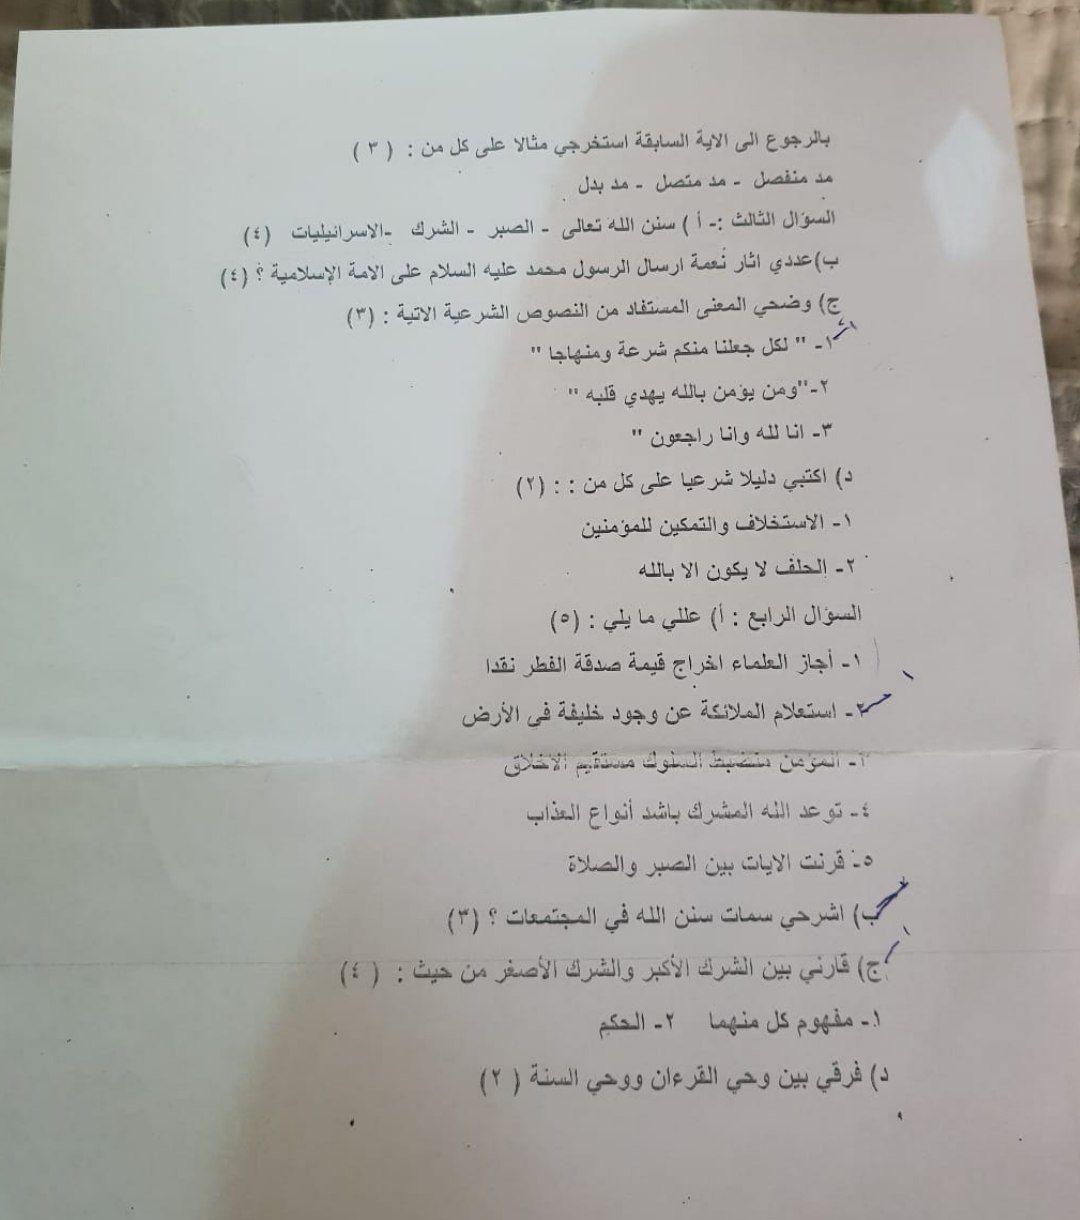 بالرجوع الى الاية السابقة استخرجي مثالا على كل من : ( ٣ )
مد منفصل - مد متصل - مد بدل
السؤال الثالث :- أ ) سنن الله تعالى - الصبر - الشرك -الاسرائيليات (٤)
ب)عددي اثار نعمة ارسال الرسول محمد عليه السلام على الامة الإسلامية ؟ (٤)
ج) وضحي المعنى المستفاد من النصوص الشرعية الاتية : (٣)
١- " لكل جعلنا منكم شرعة ومنهاجا "
٢-"ومن يؤمن بالله يهدي قلبه "
٣- انا لله وانا راجعون "
د) اكتبي دليلا شرعيا على كل من : : (٢)
١- الاستخلاف والتمكين للمؤمنين
٢- الحلف لا يكون الا بالله
السؤال الرابع : أ) عللي ما يلي : (٥)
١- أجاز العلماء اخراج قيمة صدقة الفطر نقدا
٢- استعلام الملائكة عن وجود خليفة في الأرض
٣- المؤمن منضبط السلوك مستقيم الاخلاق
٤- توعد الله المشرك باشد أنواع العذاب
٥- قرنت الايات بين الصبر والصلاة
ب) اشرحي سمات سنن الله في المجتمعات ؟ (٣)
ج) قارني بين الشرك الأكبر والشرك الأصغر من حيث : ( ٤)
١- مفهوم كل منهما ٢- الحكم
د) فرقي بين وحي القرءان ووحي السنة ( ٢)